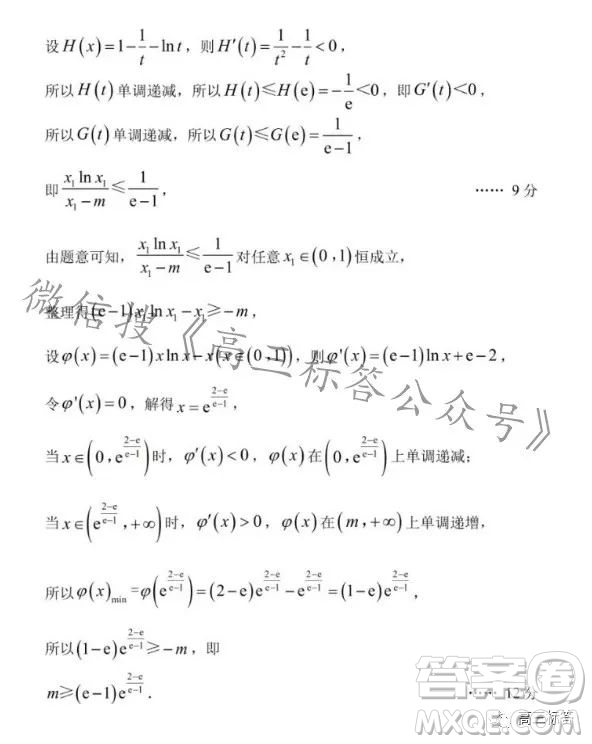 设H(x)=1-\frac{1}{t}-\ln t，则H'(t)=\frac{1}{t^2}-\frac{1}{t}<0，
所以H(t)单调递减，所以H(t)≤H(e)=-\frac{1}{e}<0，即G'(t)<0，
所以G(t)单调递减，所以G(t)≤G(e)=\frac{1}{e-1}，
即\frac{x_1\ln x_1}{x_1-m}≤\frac{1}{e-1}， …… 9分
由题意可知，\frac{x_1\ln x_1}{x_1-m}≤\frac{1}{e-1}对任意x_1∈(0,1)恒成立，
整理得(e-1)x_1\ln x_1-x_1≥-m，
设φ(x)=(e-1)x\ln x-x(x∈(0,1))，则φ'(x)=(e-1)\ln x+e-2，
令φ'(x)=0，解得x=e^{\frac{2-e}{e-1}}，
当x∈(0,e^{\frac{2-e}{e-1}})时，φ'(x)<0，φ(x)在(0,e^{\frac{2-e}{e-1}})上单调递减；
当x∈(e^{\frac{2-e}{e-1}},+∞)时，φ'(x)>0，φ(x)在(m,+∞)上单调递增，
所以φ(x)_{min}=φ(e^{\frac{2-e}{e-1}})=(2-e)e^{\frac{2-e}{e-1}}-e^{\frac{2-e}{e-1}}=(1-e)e^{\frac{2-e}{e-1}}，
所以(1-e)e^{\frac{2-e}{e-1}}≥-m，即
m≥(e-1)e^{\frac{2-e}{e-1}}． …… 12分
微信搜《高三标答公众号》
答案圈
MXQE.COM
高三标答